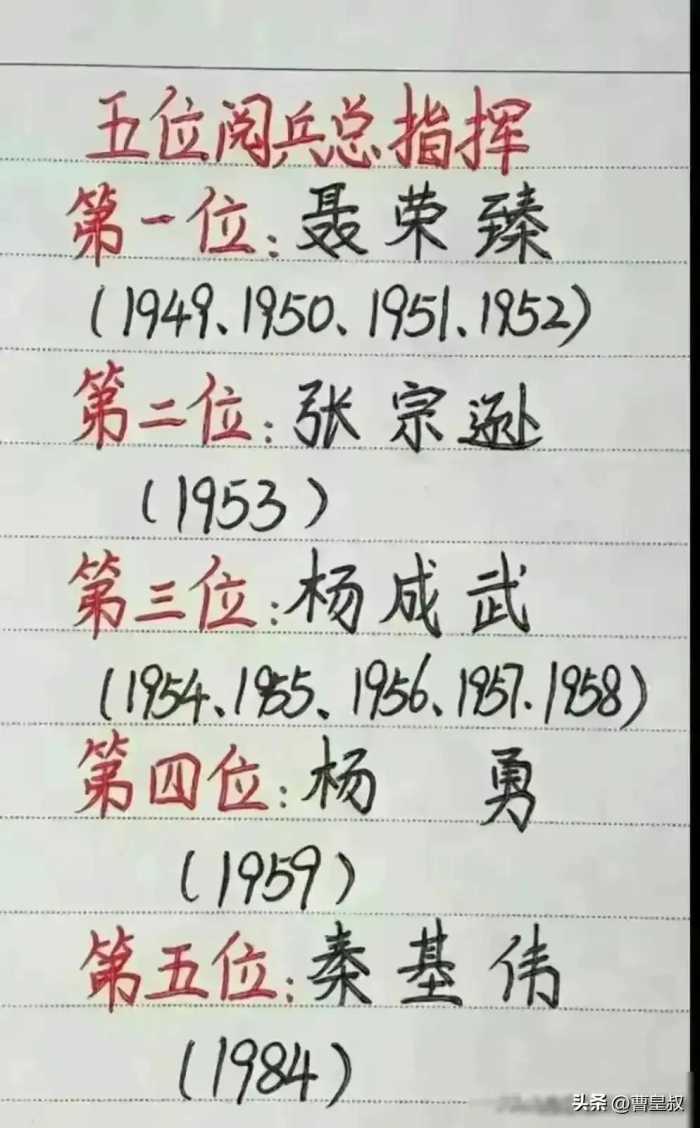 五位阅兵总指挥
第一位:聂荣臻
(1949、1950、1951、1952)
第二位:张宗逊
(1953)
第三位:杨成武
(1954、1955、1956、1957、1958)
第四位:杨 勇
(1959)
第五位:秦基伟
(1984)
头条 @曹皇叔